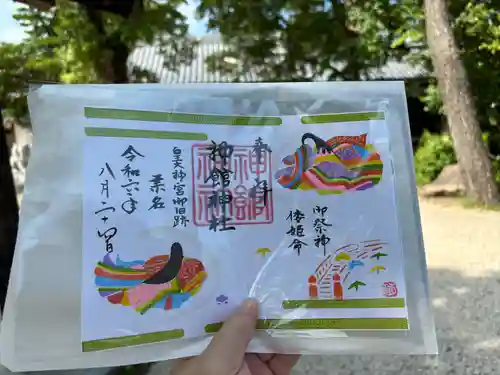 奉拝
神館神社
神館神社
皇大神宮御旧跡
桑名
令和六年
八月二十四日
御祭神
倭姫命